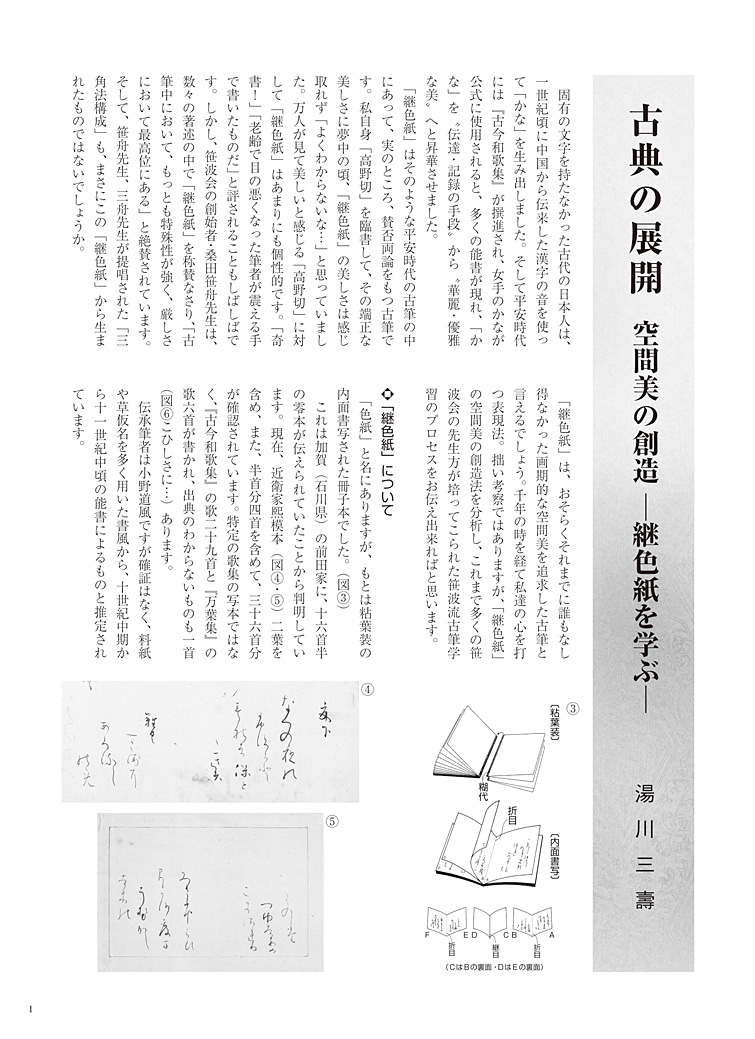 古典の展開 空間美の創造 ―継色紙を学ぶ―
湯川三壽
固有の文字を持たなかった古代の日本人は、
一世紀頃に中国から伝来した漢字の音を使っ
て「かな」を生み出しました。そして平安時代
には『古今和歌集』が撰進され、女手のかなが
公式に使用されると、多くの能書が現れ、「か
な」を〝伝達・記録の手段〟から〝華麗・優雅
な美〟へと昇華させました。
「継色紙」はそのような平安時代の古筆の中
にあって、実のところ、賛否両論をもつ古筆で
す。私自身「高野切」を臨書して、その端正な
美しさに夢中の頃、「継色紙」の美しさは感じ
取れず「よくわからないな…」と思っていまし
た。万人が見て美しいと感じる「高野切」に対
して「継色紙」はあまりにも個性的です。「奇
書!」「老齢で目の悪くなった筆者が震える手
で書いたものだ」と評されることもしばしばで
す。しかし、笹波会の創始者・桑田笹舟先生は、
数々の著述の中で「継色紙」を称賛なさり、「古
筆中において、もっとも特殊性が強く、厳しさ
において最高位にある」と絶賛されています。
そして、笹舟先生、三舟先生が提唱された「三
角法構成」も、まさにこの「継色紙」から生ま
れたものではないでしょうか。
「継色紙」は、おそらくそれまでに誰もなし
得なかった画期的な空間美を追求した古筆と
言えるでしょう。千年の時を経て私達の心を打
つ表現法。拙い考察ではありますが、「継色紙」
の空間美の創造法を分析し、これまで多くの笹
波会の先生方が培ってこられた笹波流古筆学
習のプロセスをお伝え出来ればと思います。
◆「継色紙」について
「色紙」と名にありますが、もとは粘葉装の
内面書写された冊子本でした。(図③)
これは加賀(石川県)の前田家に、十六首半
の零本が伝えられていたことから判明してい
ます。現在、近衛家熙模本(図④・⑤)二葉を
含め、また、半首分四首を含めて、三十六首分
が確認されています。特定の歌集の写本ではな
く、『古今和歌集』の歌二十九首と『万葉集』の
歌六首が書かれ、出典のわからないものも一首
(図⑥こひしさに…)あります。
伝承筆者は小野道風ですが確証はなく、料紙
や草仮名を多く用いた書風から、十世紀中期か
ら十一世紀中頃の能書によるものと推定され
ています。
③
〔粘葉装〕
糊代
折目
〔内面書写〕
F ED CB A
折目 継目 折目
(CはBの裏面・DはEの裏面)
④
⑤
1